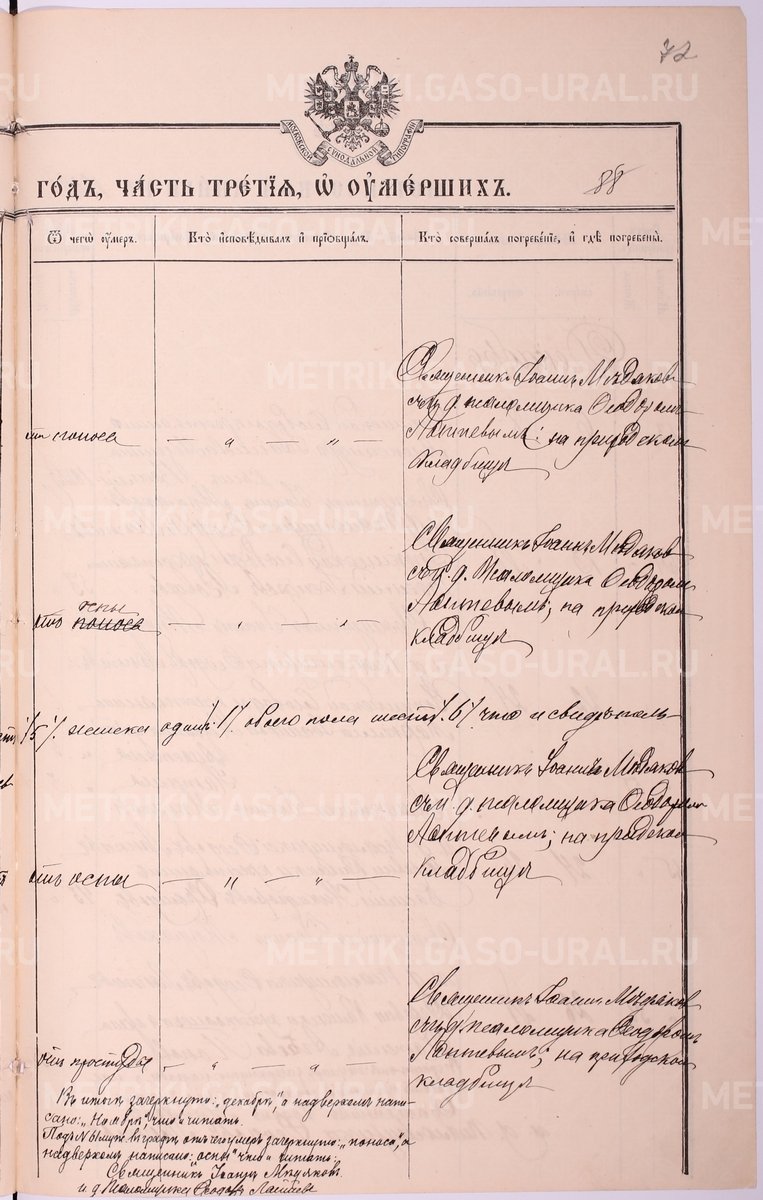 72
МОСКОВСКОЙ СѴНОДАЛЬНОЙ ТИПОГРАФІИ
ГОДЪ, ЧАСТЬ ТРЕТІЯ, Ѡ ОУМЕРШИХЪ.
88
Ѿ чегѡ оумеръ.
Кто исповѣдывалъ и пріобщалъ.
Кто совершалъ погребеніе, и гдѣ погребены.
отъ поноса
— " — " —
Священникъ Іоаннъ Мидяковъ
съ и. д. псаломщика Ѳеодоромъ
Лаптевымъ: на приходскомъ
кладбищѣ
оспы
отъ поноса
— " — " —
Священникъ Іоаннъ Мидяковъ
съ и. д. Псаломщика Ѳеодоромъ
Лаптевымъ; на приходском
кладбищѣ
/5/. женска одинъ /1/ обоего пола шесть /6/ что и свидѣтель
Священникъ Іоаннъ Мидяковъ
съ и. д. псаломщика Ѳеодоромъ
Лаптевымъ; на приходском
кладбищѣ
отъ оспы
— " — " —
Священникъ Іоаннъ Мидяковъ
съ и. д. псаломщика Ѳеодоромъ
Лаптевымъ; на приходском
кладбищѣ
отъ простуды
— " — " —
Въ итогѣ зачеркнуто: „декабрь", а надверхомъ напи-
сано: „Ноябрь", что и читать.
Подъ № 61 муж. въ графѣ отъ чего умеръ зачеркнуто: „поноса", а
надверхомъ написано: оспы" что и читать;
Священникъ Іоаннъ Мидяковъ.
и. д. Псаломщика Ѳеодоръ Лаптевъ
METRIKI.GASO-URAL.RU